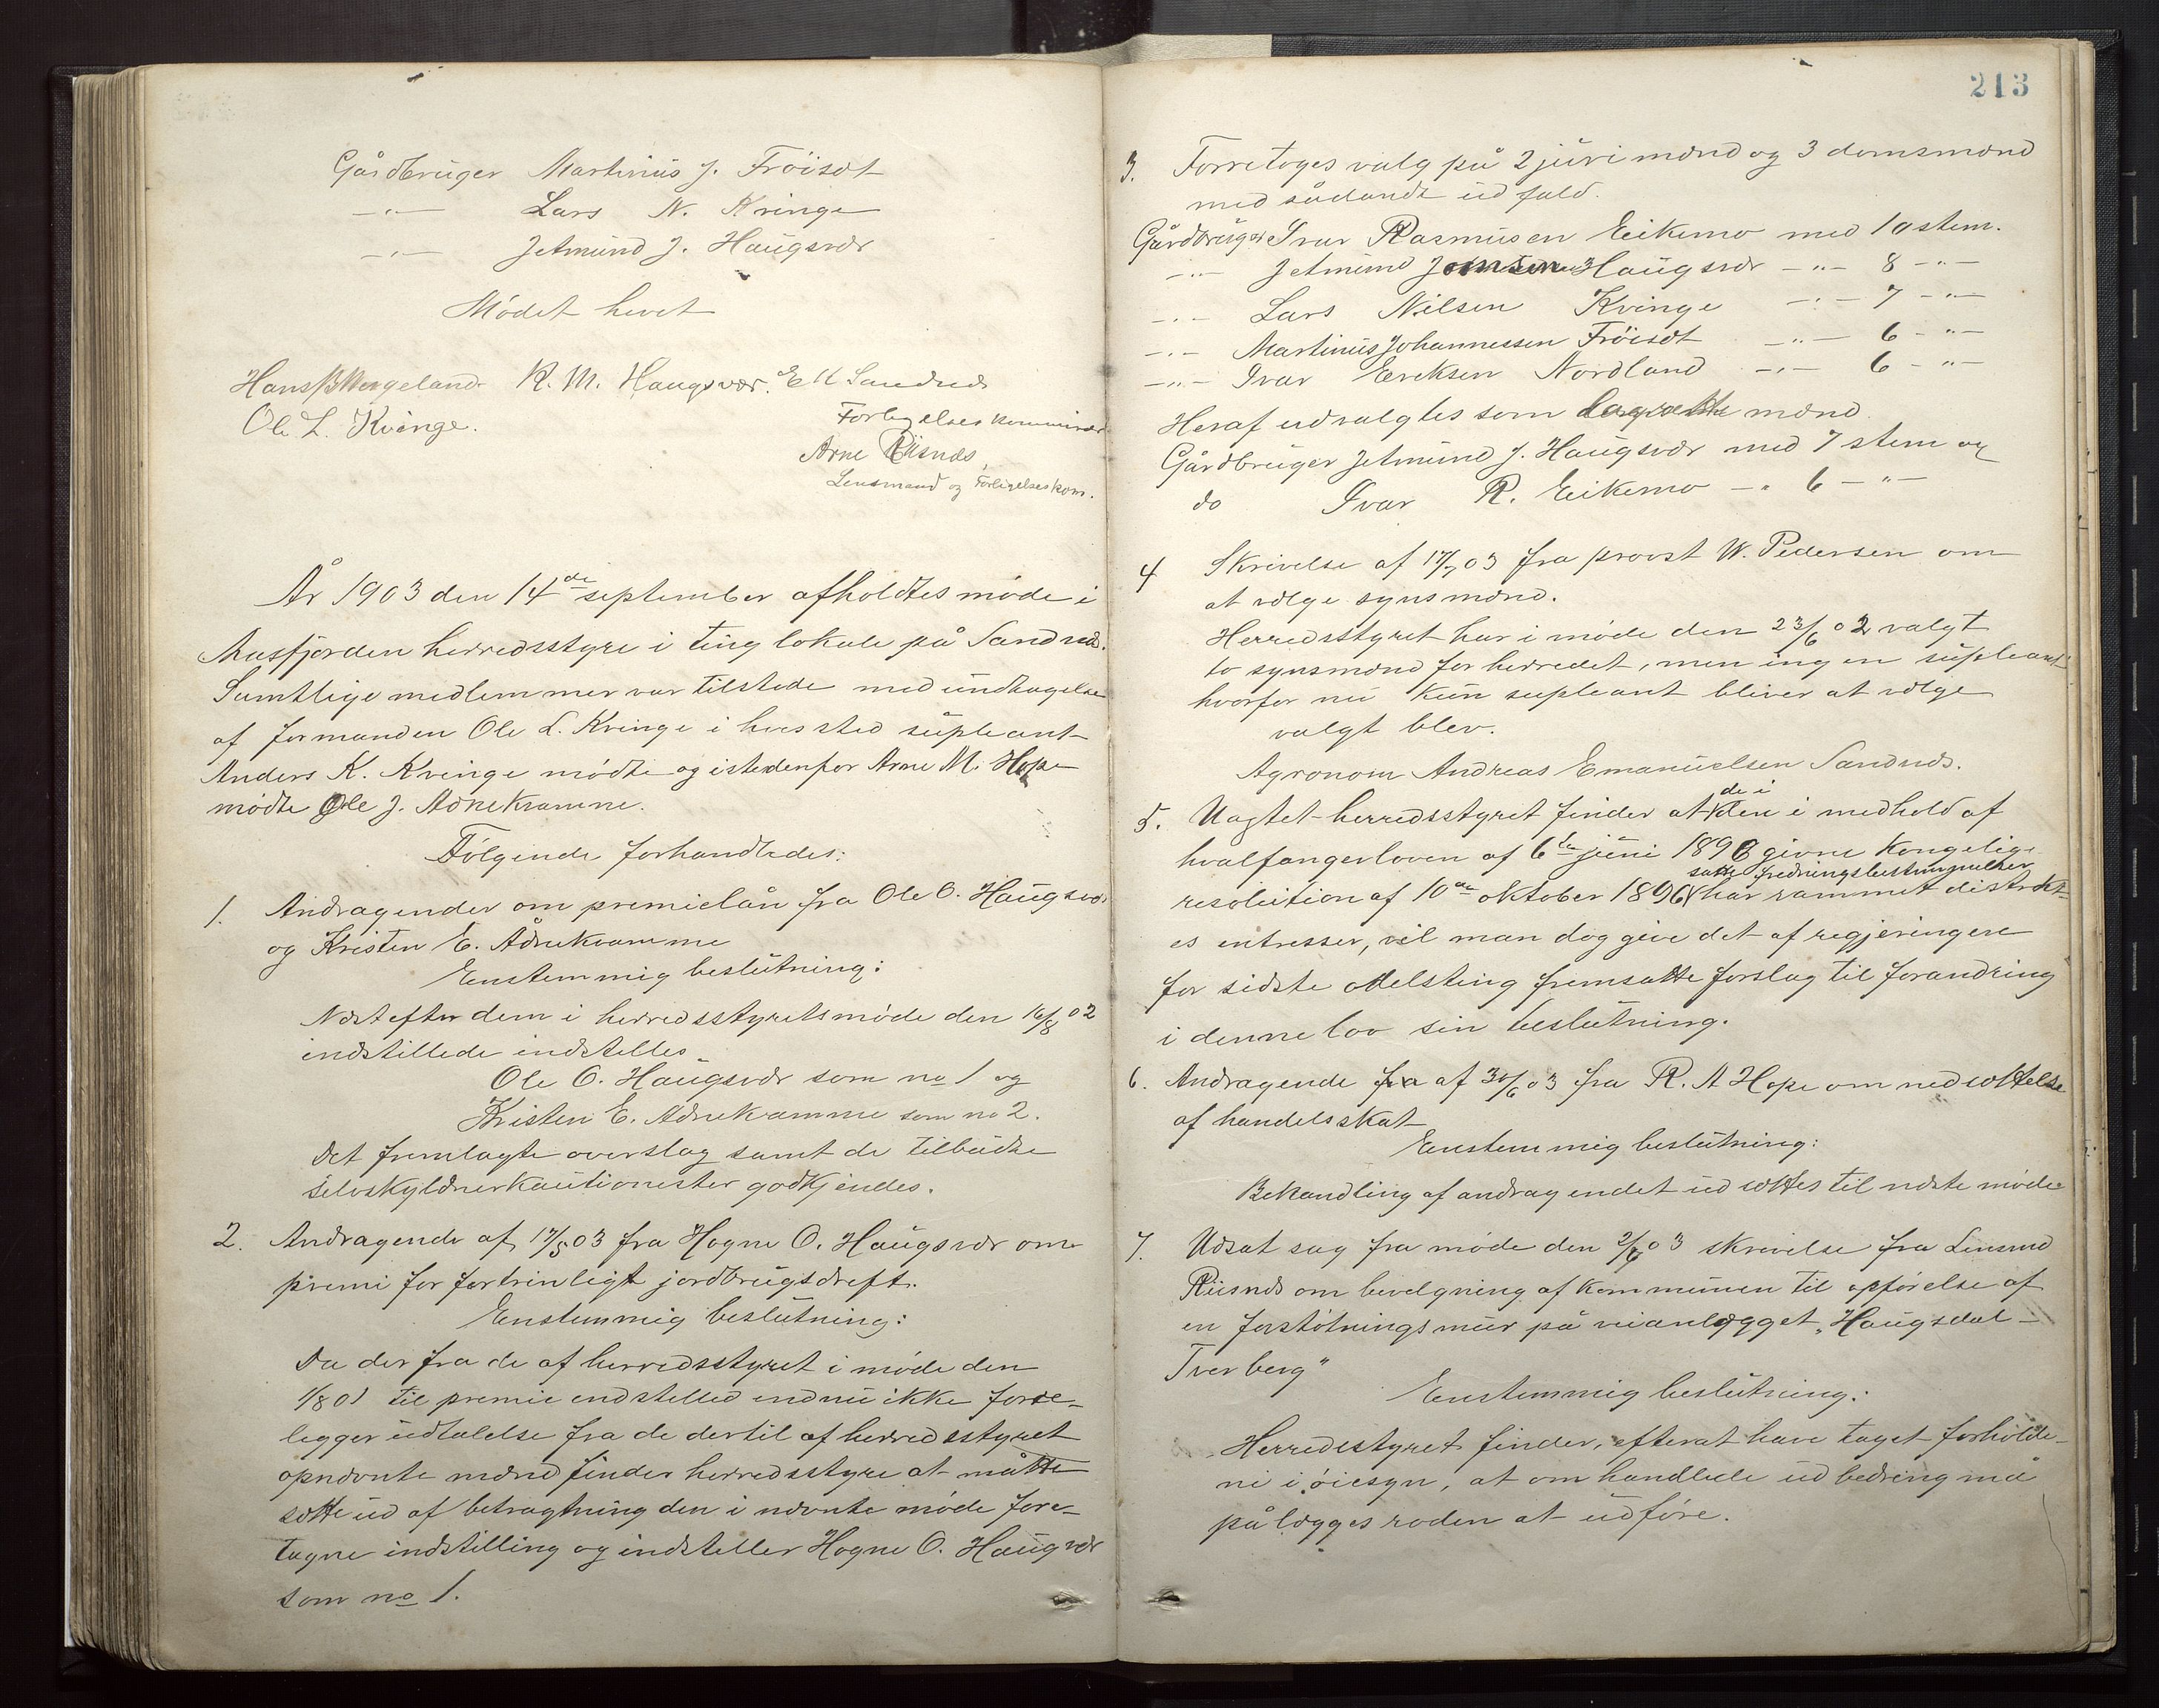 Gårdbruger Martinus J. Fröisæt
-"- Lars N. Kvinge
-"- Jetmund J. Haugsvær
Mödet hevet
Hans B Wergeland R. M. Haugsvær. E K Sandnæs
Forligelseskommisær
Ole L. Kvinge.
Arne Risnæs,
Lensmand og Forligelseskom.
År 1903 den 14de september afholdtes möde i
Masfjorden herredsstyre i ting lokale på Sandnæs.
Samtlige medlemmer var tilstede med undtagelse
af formanden Ole L. Kvinge i hvis sted supleant
Anders K. Kvinge mödte og istedenfor Arne M. Hope
mödte Ole J. Adnekvamme.
Fölgende forhandledes:
1. Andragender om premielån fra Ole O. Haugsvær
og Kristen E. Ådnekvamme
Enstemmig beslutning:
Næst efter dem i herredsstyretsmöde den 16/8 02
indstillede indstilles
Ole O. Haugsvær som no 1 og
Kristen E. Adnekvamme som no 2.
Det fremlagte overslag samt de tilbudte
selvskyldnerkautionister godkjendes.
2. Andragende af 17/5 03 fra Hogne O. Haugsvær om
premi for fortrinligt jordbrugsdreft.
Enstemmig beslutning:
Da der fra de af herredsstyret i möde den
1/8 01 til premie endstilled endnu ikke fore-
ligger udtalelse fra de dertil af herredsstyret
opnævnte mænd finder herredsstyre at måtte
sætte ud af betragtning den i nævnte möde fore-
tagne indstilling og indstiller Hogne O. Haugsvær
som no 1.
213
3. Forretoges valg på 2 juri mænd og 3 domsmænd
med sådandt udfald.
Gårdbruger Ivar Rasmusen Eikemo med 10 stem.
-"- Jetmund Jonsen Haugsvær -"- 8 -"-
-"- Lars Nilsen Kvinge -"- 7 -"-
-"- Martinus Johannessen Fröisæt -"- 6 -"-
-"- Ivar Eriksen Nordland -"- 6 -"-
Heraf udvalgtes som lagrette mænd
Gårdbruger Jetmund J. Haugsvær med 7 stem og
do Ivar R. Eikemo -"- 6 -"-
4 Skrivelse af 17/7 03 fra provst W. Pedersen om
at vælge synsmænd.
Herredsstyret har i möde den 23/6 02 valgt
to synsmænd for herredet, men ingen supleant
hvorfor nu kun supleant bliver at vælge
valgt blev.
Agronom Andreas Emanuelsen Sandnæs.
5. Uagtet herredsstyret finder at de i den i medhold af
hvalfangerloven af 6te juni 1896 givne kongelige
resolution af 10de oktober 1896 satte fredningsbestemmelser har rammet distrikt-
es entresser, vil man dog give det af regjeringen
for sidste odelsting fremsatte forslag til forandring
i denne lov sin beslutning.
6. Andragende fra af 30/6 03 fra R. A Hope om nedsættelse
af handelsskat
Enstemmig beslutning:
Behandling af andragendet udsættes til næste möde
7. Udsat sag fra möde den 2/7 03 skrivelse fra Lensmd
Risnæs om bevelgning af kommunen til opförelse af
en forstötningsmur på veianlægget „Haugsdal-
Tverberg"
Enstemmig beslutning:
Herredsstyret finder, efterat have taget forholde-
ne i öiesyn, at omhandlede udbedring må
pålægges roden at udföre.